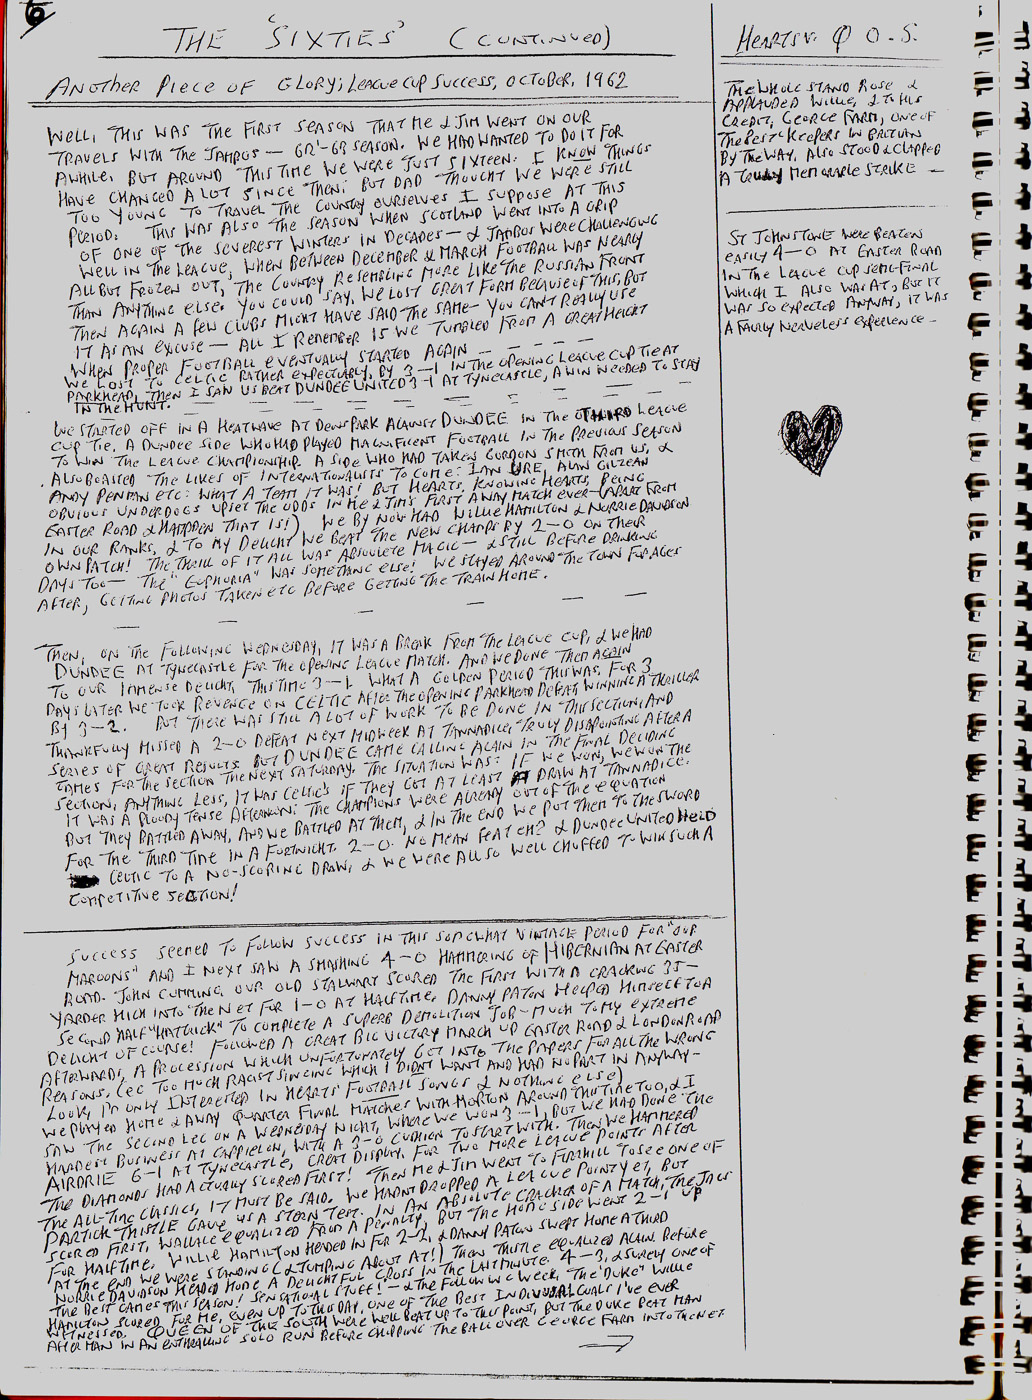 6
THE 'SIXTIES' (CONTINUED)
ANOTHER PIECE OF GLORY; LEAGUE CUP SUCCESS, OCTOBER, 1962
WELL, THIS WAS THE FIRST SEASON THAT ME & JIM WENT ON OUR
TRAVELS WITH THE JAMBOS — 62'-63 SEASON. WE HAD WANTED TO DO IT FOR
AWHILE, BUT AROUND THIS TIME WE WERE JUST SIXTEEN. I KNOW THINGS
HAVE CHANGED A LOT SINCE THEN; BUT DAD THOUGHT WE WERE STILL
TOO YOUNG TO TRAVEL THE COUNTRY OURSELVES I SUPPOSE AT THIS
PERIOD. THIS WAS ALSO THE SEASON WHEN SCOTLAND WENT INTO A GRIP
OF ONE OF THE SEVEREST WINTERS IN DECADES — & JAMBOS WERE CHALLENGING
WELL IN THE LEAGUE, WHEN BETWEEN DECEMBER & MARCH FOOTBALL WAS NEARLY
ALL BUT FROZEN OUT, THE COUNTRY RESEMBLING MORE LIKE THE RUSSIAN FRONT
THAN ANYTHING ELSE. YOU COULD SAY, WE LOST GREAT FORM BECAUSE OF THIS, BUT
THEN AGAIN A FEW CLUBS MIGHT HAVE SAID THE SAME — YOU CAN'T REALLY USE
IT AS AN EXCUSE — ALL I REMEMBER IS WE TUMBLED FROM A GREAT HEIGHT
WHEN PROPER FOOTBALL EVENTUALLY STARTED AGAIN — — — — —
WE LOST TO CELTIC RATHER EXPECTABLY, BY 3-1 IN THE OPENING LEAGUE CUP TIE AT
PARKHEAD, THEN I SAW US BEAT DUNDEE UNITED 3-1 AT TYNECASTLE, A WIN NEEDED TO STAY
IN THE HUNT.
WE STARTED OFF IN A HEATWAVE AT DENS PARK AGAINST DUNDEE IN THE THIRD LEAGUE
CUP TIE. A DUNDEE SIDE WHO HAD PLAYED MAGNIFICENT FOOTBALL IN THE PREVIOUS SEASON
TO WIN THE LEAGUE CHAMPIONSHIP. A SIDE WHO HAD TAKEN GORDON SMITH FROM US, &
ALSO BOASTED THE LIKES OF INTERNATIONALISTS TO COME: IAN URE, ALAN GILZEAN
ANDY PENMAN ETC: WHAT A TEAM IT WAS! BUT HEARTS, KNOWING HEARTS, BEING
OBVIOUS UNDERDOGS UPSET THE ODDS IN ME & JIM'S FIRST AWAY MATCH EVER — (APART FROM
EASTER ROAD & HAMPDEN THAT IS!) WE BY NOW HAD WILLIE HAMILTON & NORRIE DAVIDSON
IN OUR RANKS, & TO MY DELIGHT WE BEAT THE NEW CHAMPS BY 2-0 ON THEIR
OWN PATCH! THE THRILL OF IT ALL WAS ABSOULETE MAGIC — & STILL BEFORE DRINKING
DAYS TOO — THE "EUPHORIA" WAS SOMETHING ELSE! WE STAYED AROUND THE TOWN FOR AGES
AFTER, GETTING PHOTOS TAKEN ETC BEFORE GETTING THE TRAIN HOME.
THEN, ON THE FOLLOWING WEDNESDAY, IT WAS A BREAK FROM THE LEAGUE CUP, & WE HAD
DUNDEE AT TYNECASTLE FOR THE OPENING LEAGUE MATCH. AND WE DONE THEM AGAIN
TO OUR IMMENSE DELIGHT, THIS TIME 3-1. WHAT A GOLDEN PERIOD THIS WAS, FOR 3
DAYS LATER WE TOOK REVENGE ON CELTIC AFTER THE OPENING PARKHEAD DEFEAT, WINNING A THRILLER
BY 3-2. BUT THERE WAS STILL A LOT OF WORK TO BE DONE IN THIS SECTION, AND
THANKFULLY MISSED A 2-0 DEFEAT NEXT MIDWEEK AT TANNADICE, TRULY DISAPPOINTING AFTER A
SERIES OF GREAT RESULTS. BUT DUNDEE CAME CALLING AGAIN IN THE FINAL DECIDING
GAMES FOR THE SECTION THE NEXT SATURDAY. THE SITUATION WAS: IF WE WON, WE WON THE
SECTION, ANYTHING LESS, IT WAS CELTIC'S IF THEY GOT AT LEAST A DRAW AT TANNADICE.
IT WAS A BLOODY TENSE AFTERNOON: THE CHAMPIONS WERE ALREADY OUT OF THE EQUATION
BUT THEY BATTLED AWAY, AND WE BATTLED AT THEM, & IN THE END WE PUT THEM TO THE SWORD
FOR THE THIRD TIME IN A FORTNIGHT. 2-0. NO MEAN FEAT EH? & DUNDEE UNITED HELD
CELTIC TO A NO-SCORING DRAW, & WE WERE ALL SO WELL CHUFFED TO WIN SUCH A
COMPETITIVE SECTION!
SUCCESS SEEMED TO FOLLOW SUCCESS IN THIS SOMEWHAT VINTAGE PERIOD FOR "OUR
MAROONS" AND I NEXT SAW A SMASHING 4-0 HAMMERING OF HIBERNIAN AT EASTER
ROAD. JOHN CUMMING, OUR OLD STALWART SCORED THE FIRST WITH A CRACKING 35-
YARDER HIGH INTO THE NET FOR 1-0 AT HALFTIME. DANNY PATON HELPED HIMSELF TO A
SECOND HALF "HATTRICK" TO COMPLETE A SUPERB DEMOLITION JOB — MUCH TO MY EXTREME
DELIGHT OF COURSE! FOLLOWED A GREAT BIG VICTORY MARCH UP EASTER ROAD & LONDON ROAD
AFTERWARDS, A PROCESSION WHICH UNFORTUNATELY GOT INTO THE PAPERS FOR ALL THE WRONG
REASONS. (EG TOO MUCH RACIST SINGING WHICH I DIDN'T WANT AND HAD NO PART IN ANYWAY —
LOOK, I'M ONLY INTERESTED IN HEARTS' FOOTBALL SONGS & NOTHING ELSE)
WE PLAYED HOME & AWAY QUARTER FINAL MATCHES WITH MORTON AROUND THIS TIME TOO, & I
SAW THE SECOND LEG ON A WEDNESDAY NIGHT, WHERE WE WON 3-1, BUT WE HAD DONE THE
HARDEST BUSINESS AT CAPPIELOW, WITH A 3-0 CUSHION TO START WITH. THEN WE HAMMERED
AIRDRIE 6-1 AT TYNECASTLE, GREAT DISPLAY, FOR TWO MORE LEAGUE POINTS AFTER
THE DIAMONDS HAD ACTUALLY SCORED FIRST! THEN ME & JIM WENT TO FIRHILL TO SEE ONE OF
THE ALL-TIME CLASSICS, IT MUST BE SAID. WE HADN'T DROPPED A LEAGUE POINT YET, BUT
PARTICK THISTLE GAVE US A STERN TEST. IN AN ABSOLUTE CRACKER OF A MATCH, THE JAGS
SCORED FIRST, WALLACE EQUALIZED FROM A PENALTY, BUT THE HOME SIDE WENT 2-1 UP
FOR HALFTIME. WILLIE HAMILTON HEADED IN FOR 2-2, & DANNY PATON SWEPT HOME A THIRD
AT THE END WE WERE STANDING (& JUMPING ABOUT AT!) THEN THISTLE EQUALIZED AGAIN. BEFORE
NORRIE DAVIDSON HEADED HOME A DELIGHTFUL CROSS IN THE LAST MINUTE. 4-3, & SURELY ONE OF
THE BEST GAMES THIS SEASON! SENSATIONAL STUFF! — & THE FOLLOWING WEEK, THE "DUKE" WILLIE
HAMILTON SCORED FOR ME, EVEN UP TO THIS DAY, ONE OF THE BEST INDIVIDUAL GOALS I'VE EVER
WITNESSED. QUEEN OF THE SOUTH WERE WELL BEAT UP TO THIS POINT, BUT THE DUKE BEAT MAN
AFTER MAN IN AN ENTHRALLING SOLO RUN BEFORE CHIPPING THE BALL OVER GEORGE FARM INTO THE NET.
HEARTS v. Q O.S.
THE WHOLE STAND ROSE &
APPLAUDED WILLIE, & TO HIS
CREDIT, GEORGE FARM, ONE OF
THE BEST KEEPERS IN BRITIAN
BY THE WAY, ALSO STOOD & CLAPPED
A TRULY MEMORABLE STRIKE —
ST JOHNSTONE WERE BEATEN
EASILY 4-0 AT EASTER ROAD
IN THE LEAGUE CUP SEMI-FINAL
WHICH I ALSO WAS AT, BUT IT
WAS SO EXPECTED ANYWAY, IT WAS
A FAIRLY NERVELESS EXPERIENCE —